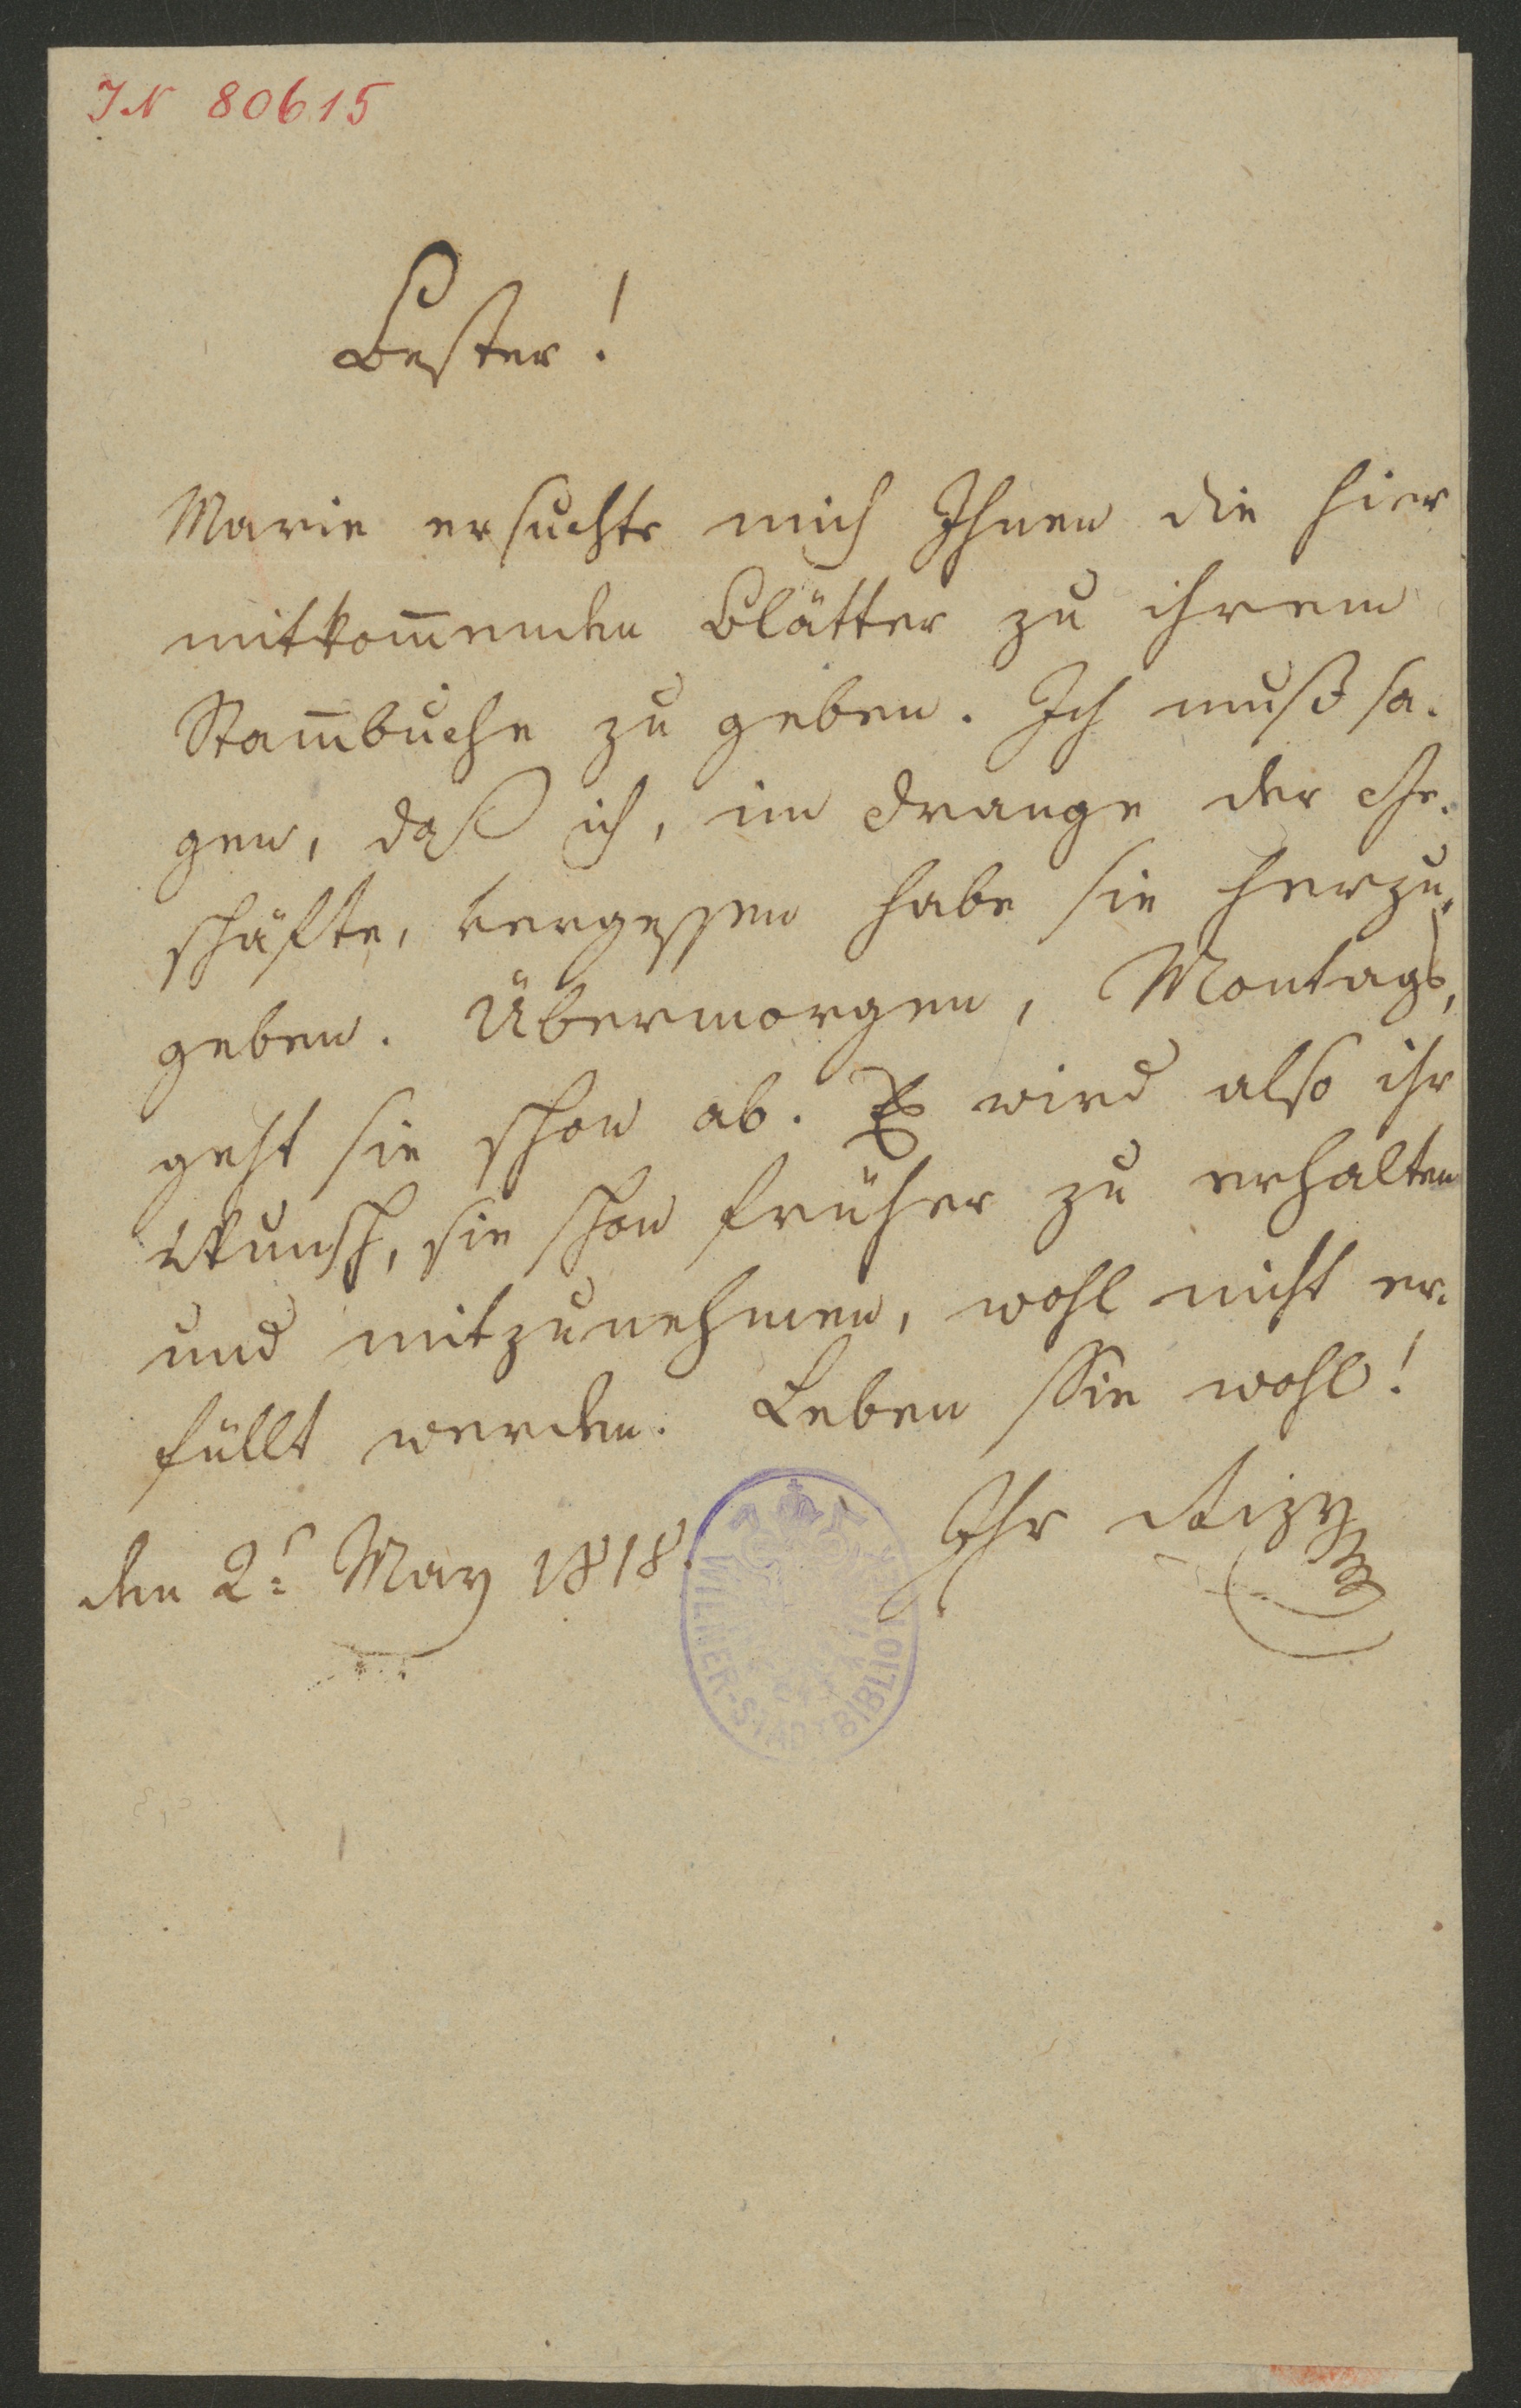 IN 80615
Bester!
Marie ersuchte mich Ihnen die hier
mitkom̅enden Blätter zu ihrem
Stam̅buche zu geben. Ich muß sa-
gen, daß ich, im Drange der Ge-
schäfte, vergessen habe sie herzu-
geben. Übermorgen, Montags,
geht sie schon ab. Es wird also ihr
Wunsch, sie schon früher zu erhalten
und mitzunehmen, wohl nicht er-
füllt werden. Leben Sie wohl!
Ihr Rizy
den 2: May 1818.
WIENER-STADTBIBLIOTHEK